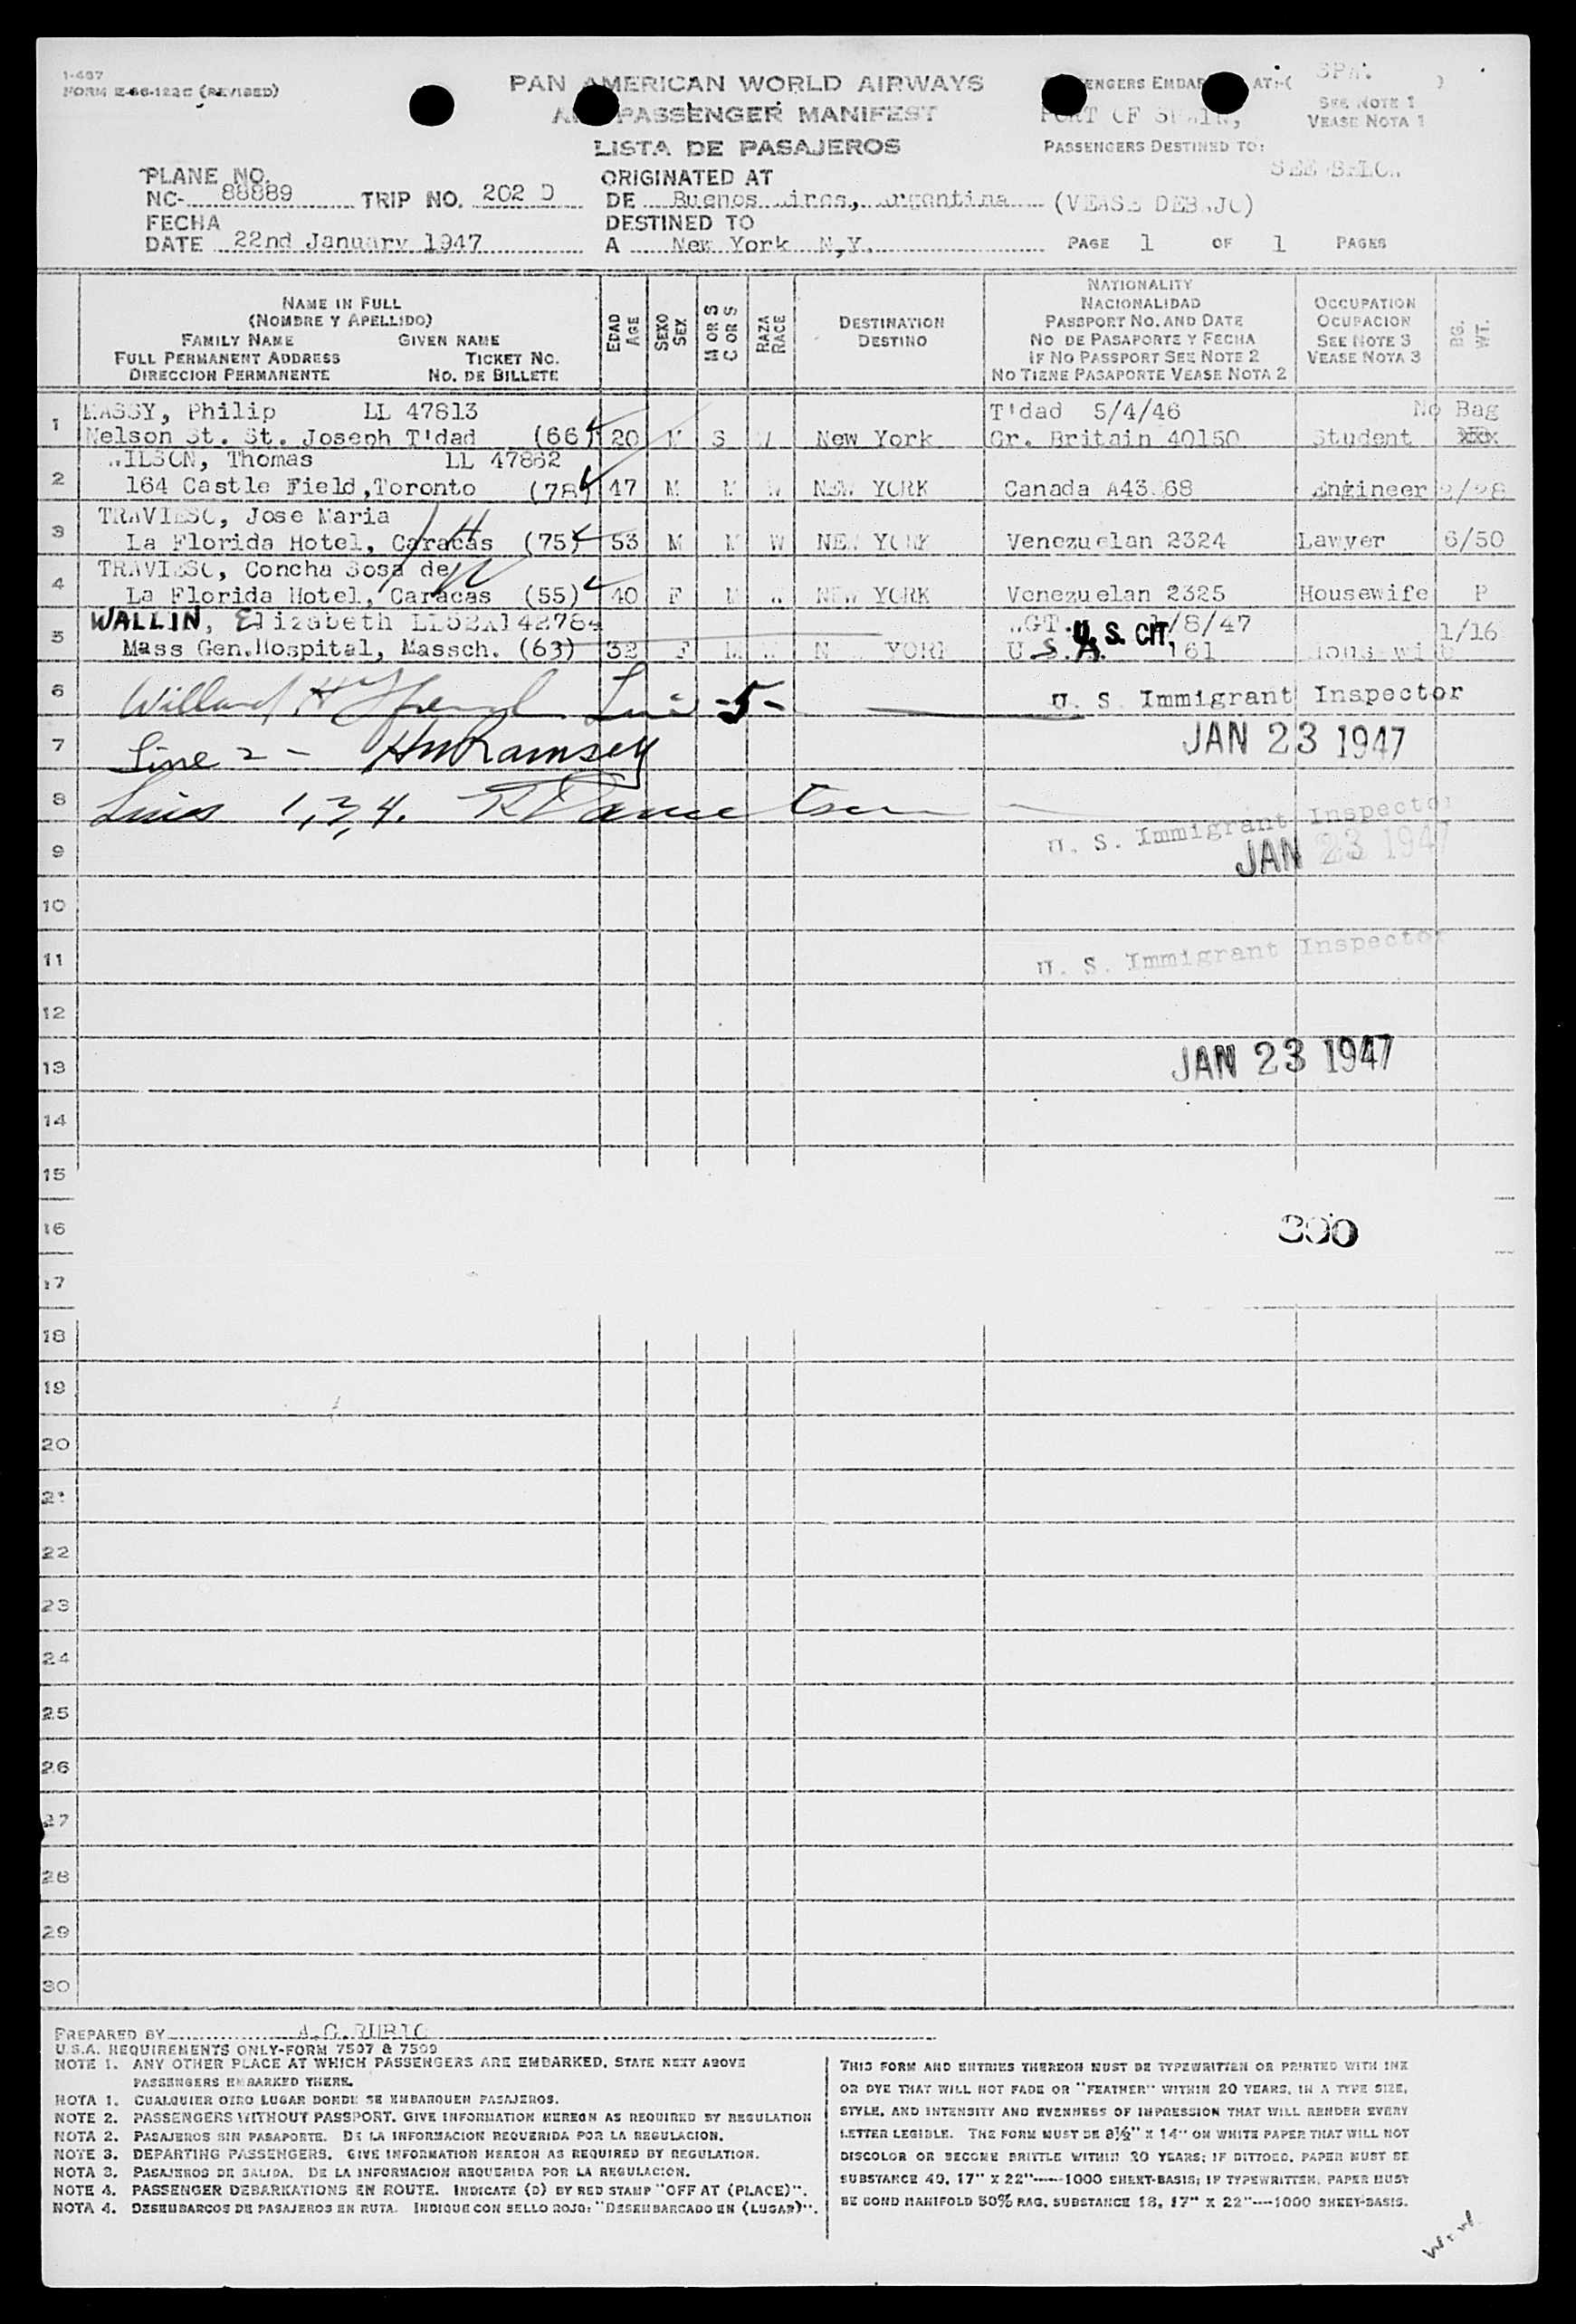 1-467
FORM E-66-122C (REVISED)
PAN AMERICAN WORLD AIRWAYS
PASSENGER MANIFEST
LISTA DE PASAJEROS
AT:-(
)
SEE NOTE 1
VEASE NOTA 1
PORT OF SPAIN,
PASSENGERS DESTINED TO:
SEE BELOW
(VEASE DEBAJO)
PLANE NO.
NC- 88889 TRIP NO. 202 D
FECHA
DATE 22nd January 1947
ORIGINATED AT
DE Buenos Aires, Argentina
DESTINED TO
A New York N,Y.
PAGE 1 OF 1 PAGES
NAME IN FULL
(NOMBRE Y APELLIDO)
FAMILY NAME GIVEN NAME
FULL PERMANENT ADDRESS TICKET NO.
DIRECCION PERMANENTE NO. DE BILLETE
EDAD
AGE
SEXO
SEX
M OR S
C OR S
RAZA
RACE
DESTINATION
DESTINO
NATIONALITY
NACIONALIDAD
PASSPORT NO. AND DATE
NO DE PASAPORTE Y FECHA
IF NO PASSPORT SEE NOTE 2
NO TIENE PASAPORTE VEASE NOTA 2
OCCUPATION
OCUPACION
SEE NOTE 3
VEASE NOTA 3
BG.
WT.
1 MASSY, Philip LL 47813 T'dad 5/4/46 No Bag
Nelson St. St. Joseph T'dad (66) 20 M S W New York Gr. Britain 40150 Student
2 WILSON, Thomas LL 47862
164 Castle Field, Toronto (78) 47 M M W NEW YORK Canada Engineer 2/28
3 TRAVIESO, Jose Maria
La Florida Hotel, Caracas (75) 53 M M W NEW YORK Venezuelan 2324 Lawyer 6/50
4 TRAVIESO, Concha Sosa de
La Florida Hotel, Caracas (55) 40 F M W NEW YORK Venezuelan 2325 Housewife P
5 WALLIN, Elizabeth /8/47 1/16
U. S. CIT.
Mass Gen. Hospital, Massch. (63) 32 F M W N YORK U.S.A. 161
6 Willard H -5- U. S. Immigrant Inspector
7 Line 2 - HWRamsey JAN 23 1947
8 Lines 1, 3, 4.
U. S. Immigrant Inspector
9 JAN 23 1947
10
11 U. S. Immigrant Inspector
12
13 JAN 23 1947
14
15
16 300
17
18
19
20
21
22
23
24
25
26
27
28
29
30
PREPARED BY A.C.RUBIO
U.S.A. REQUIREMENTS ONLY-FORM 7507 & 7509
NOTE 1. ANY OTHER PLACE AT WHICH PASSENGERS ARE EMBARKED, STATE NEXT ABOVE
PASSENGERS EMBARKED THERE.
NOTA 1. CUALQUIER OTRO LUGAR DONDE SE EMBARQUEN PASAJEROS.
NOTE 2. PASSENGERS WITHOUT PASSPORT. GIVE INFORMATION HEREON AS REQUIRED BY REGULATION
NOTA 2. PASAJEROS SIN PASAPORTE. DE LA INFORMACION REQUERIDA POR LA REGULACION.
NOTE 3. DEPARTING PASSENGERS. GIVE INFORMATION HEREON AS REQUIRED BY REGULATION.
NOTA 3. PASAJEROS DE SALIDA. DE LA INFORMACION REQUERIDA POR LA REGULACION.
NOTE 4. PASSENGER DEBARKATIONS EN ROUTE. INDICATE (D) BY RED STAMP "OFF AT (PLACE)".
NOTA 4. DESEMBARCOS DE PASAJEROS EN RUTA. INDIQUE CON SELLO ROJO: "DESEMBARCADO EN (LUGAR)".
THIS FORM AND ENTRIES THEREON MUST BE TYPEWRITTEN OR PRINTED WITH INK
OR DYE THAT WILL NOT FADE OR "FEATHER" WITHIN 20 YEARS, IN A TYPE SIZE,
STYLE, AND INTENSITY AND EVENNESS OF IMPRESSION THAT WILL RENDER EVERY
LETTER LEGIBLE. THE FORM MUST BE 8½" X 14" ON WHITE PAPER THAT WILL NOT
DISCOLOR OR BECOME BRITTLE WITHIN 20 YEARS; IF DITTOED, PAPER MUST BE
SUBSTANCE 40, 17" X 22"----1000 SHEET-BASIS; IF TYPEWRITTEN, PAPER MUST
BE BOND MANIFOLD 50% RAG, SUBSTANCE 18, 17" X 22"----1000 SHEET-BASIS.